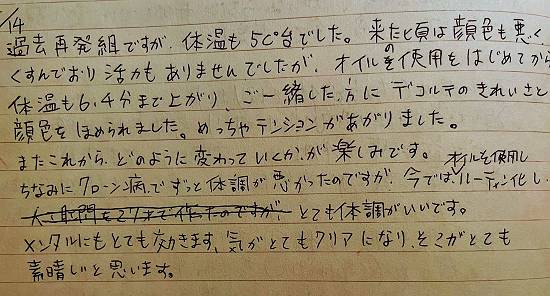 14
過去再発組ですが、体温も50°台でした。来たピ頃は顔色も悪く、
くすんでおり活力もありませんでしたが、オイルのを使用をはじめてから
体温も6.4分まで上がり、ご一緒した方にデコルテのきれいさと
顔色をほめられました。めっちゃテンションがあがりました。
またこれから、どのように変わっていくか、が楽しみです。
ちなみにクローン病でずっと体調が悪かったのですが、今ではオイルを使用しルーティン化し、
とても体調がいいです。
メンタルにもとても効きます、気がとてもクリアになり、そこがとても
素晴しいと思います。